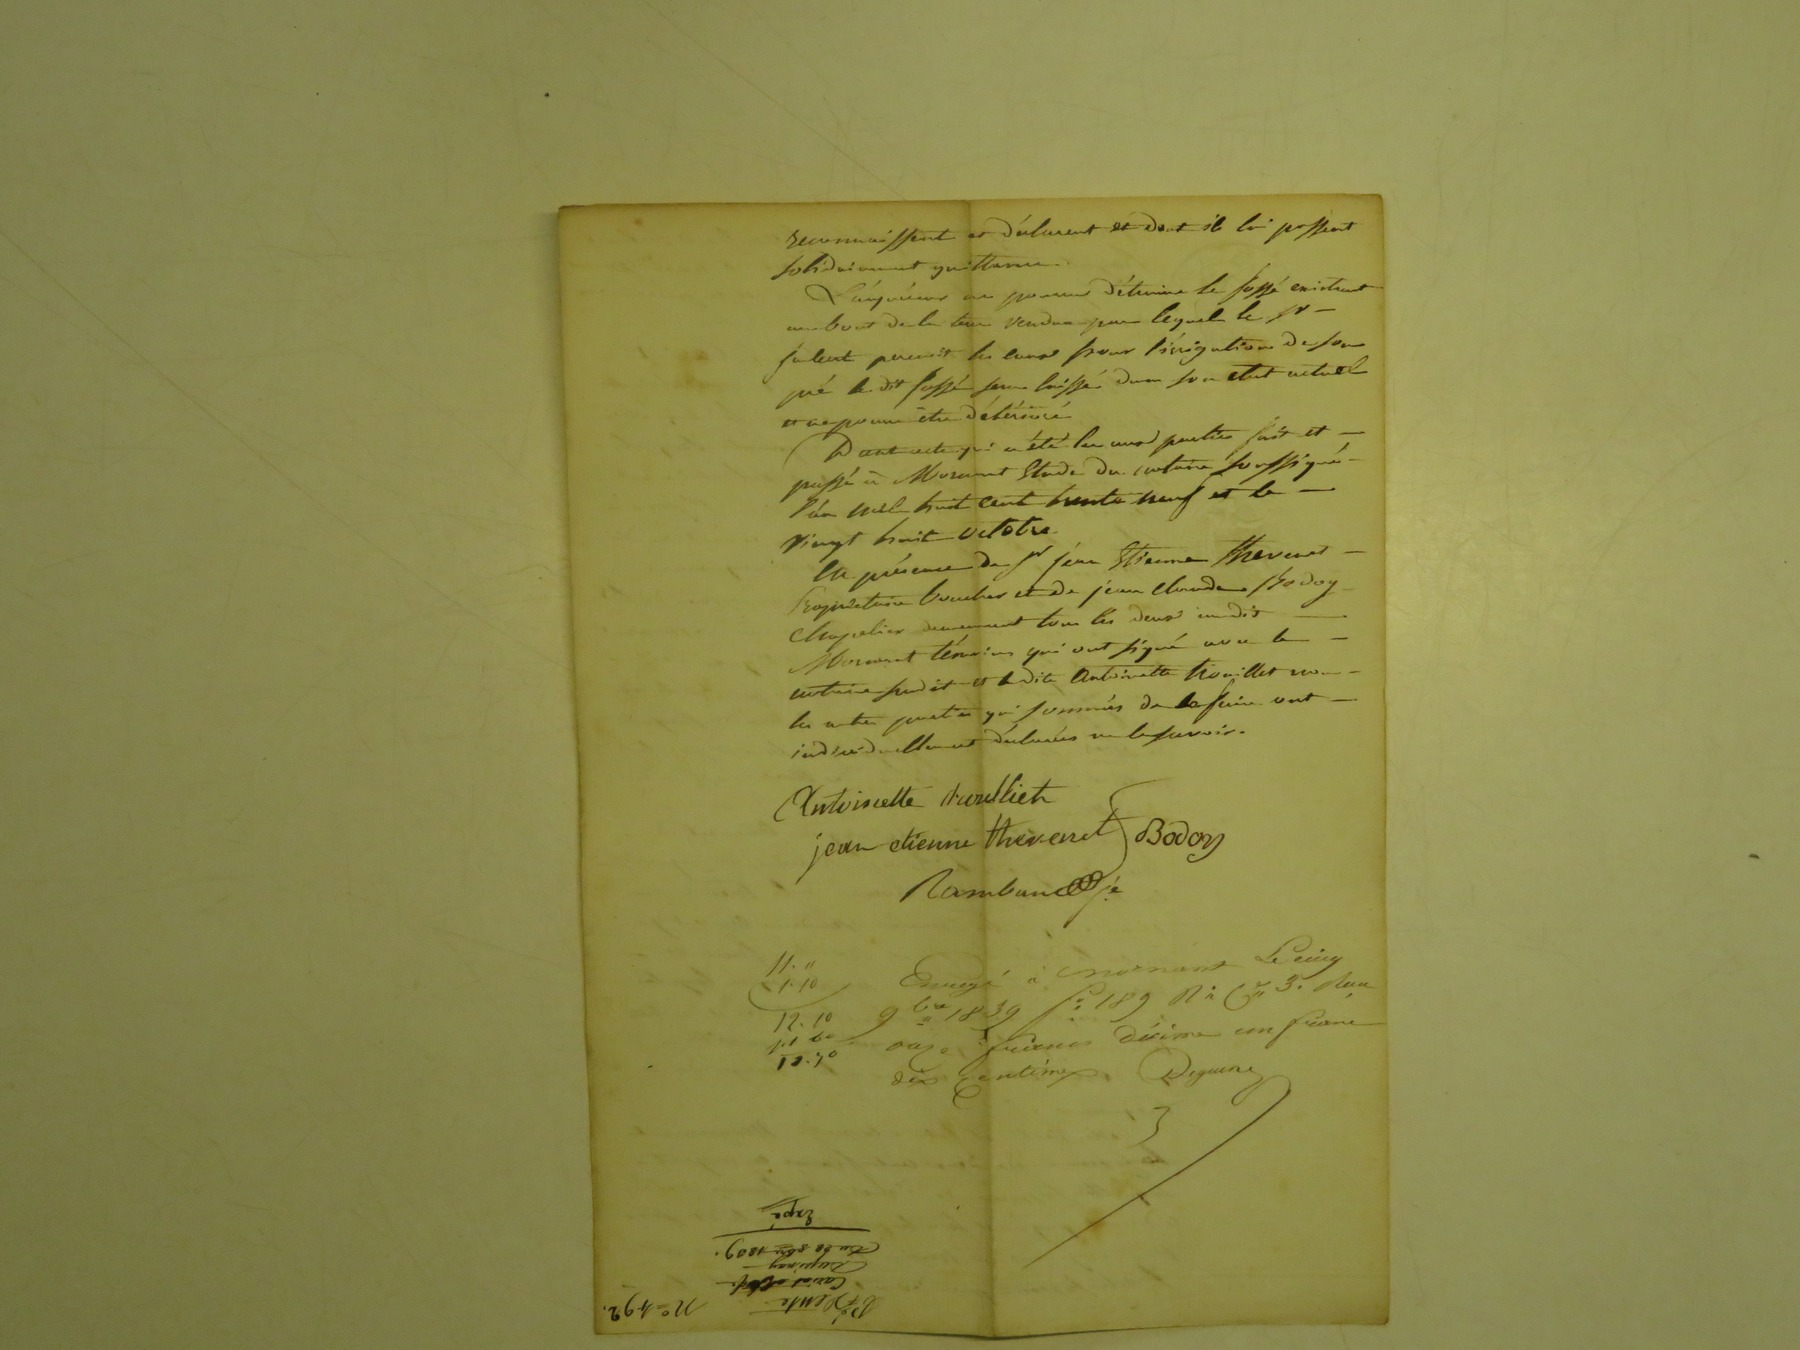 reconnaissent et déclarent et dont ils lui passent
solidairement quittance.
L'aquéreur ne pourra détruire le fossé existant
au bout de la terre vendue par lequel le Sr
perçoit les eaux pour l'irrigation de son
pré le dit fossé sera laissé dans son état actuel
et ne pourra être détérioré
Dont acte qui a été lu aux parties fait et
passé à Mornant Etude du notaire soussigné
l'an mil huit cent trente neuf et le
vingt huit octobre.
En présence de Sr jean Etienne thevenet
Propriétaire boucher et de jean claude Bodoy
Chapelier demeurant tous les deux audit
Mornant témoins qui ont signé avec le
notaire susdit et ladite Antoinette trouillet non
les autres parties qui sommées de le faire ont
individuellement déclarées ne le savoir.
Antoinette trouilliet
jean etienne thevenet Bodoy
Rambaud
11. "
1. 10
12. 10
Enregé à mornant Le cinq
9bre 1839 fo 189 Ro Ce 3. Reçu
onze francs décime un franc
dix centimes.
No 492.
Vente
Du 28 8bre 1839.
Expé